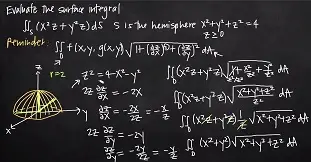 Evaluate the surface integral
∬_S (x²z + y²z) dS   S is the hemisphere x²+y²+z²=4
z≥0
Reminder:
∬_D f(x,y,g(x,y)) √(1+(∂z/∂x)²+(∂z/∂y)²) dA
r=2
z
y
x
z² = 4-x²-y²
2z ∂z/∂x = -2x
∂z/∂x = -2x/2z = -x/z
2z ∂z/∂y = -2y
∂z/∂y = -2y/2z = -y/z
∬_D (x²z+y²z) √(1+x²/z²+y²/z²) dA
∬_D (x²z+y²z) √((x²+y²+z²)/z²) dA
∬_D (x²z+y²z) 1/z √(x²+y²+z²) dA
∬_D (x²+y²) √(x²+y²+z²) dA